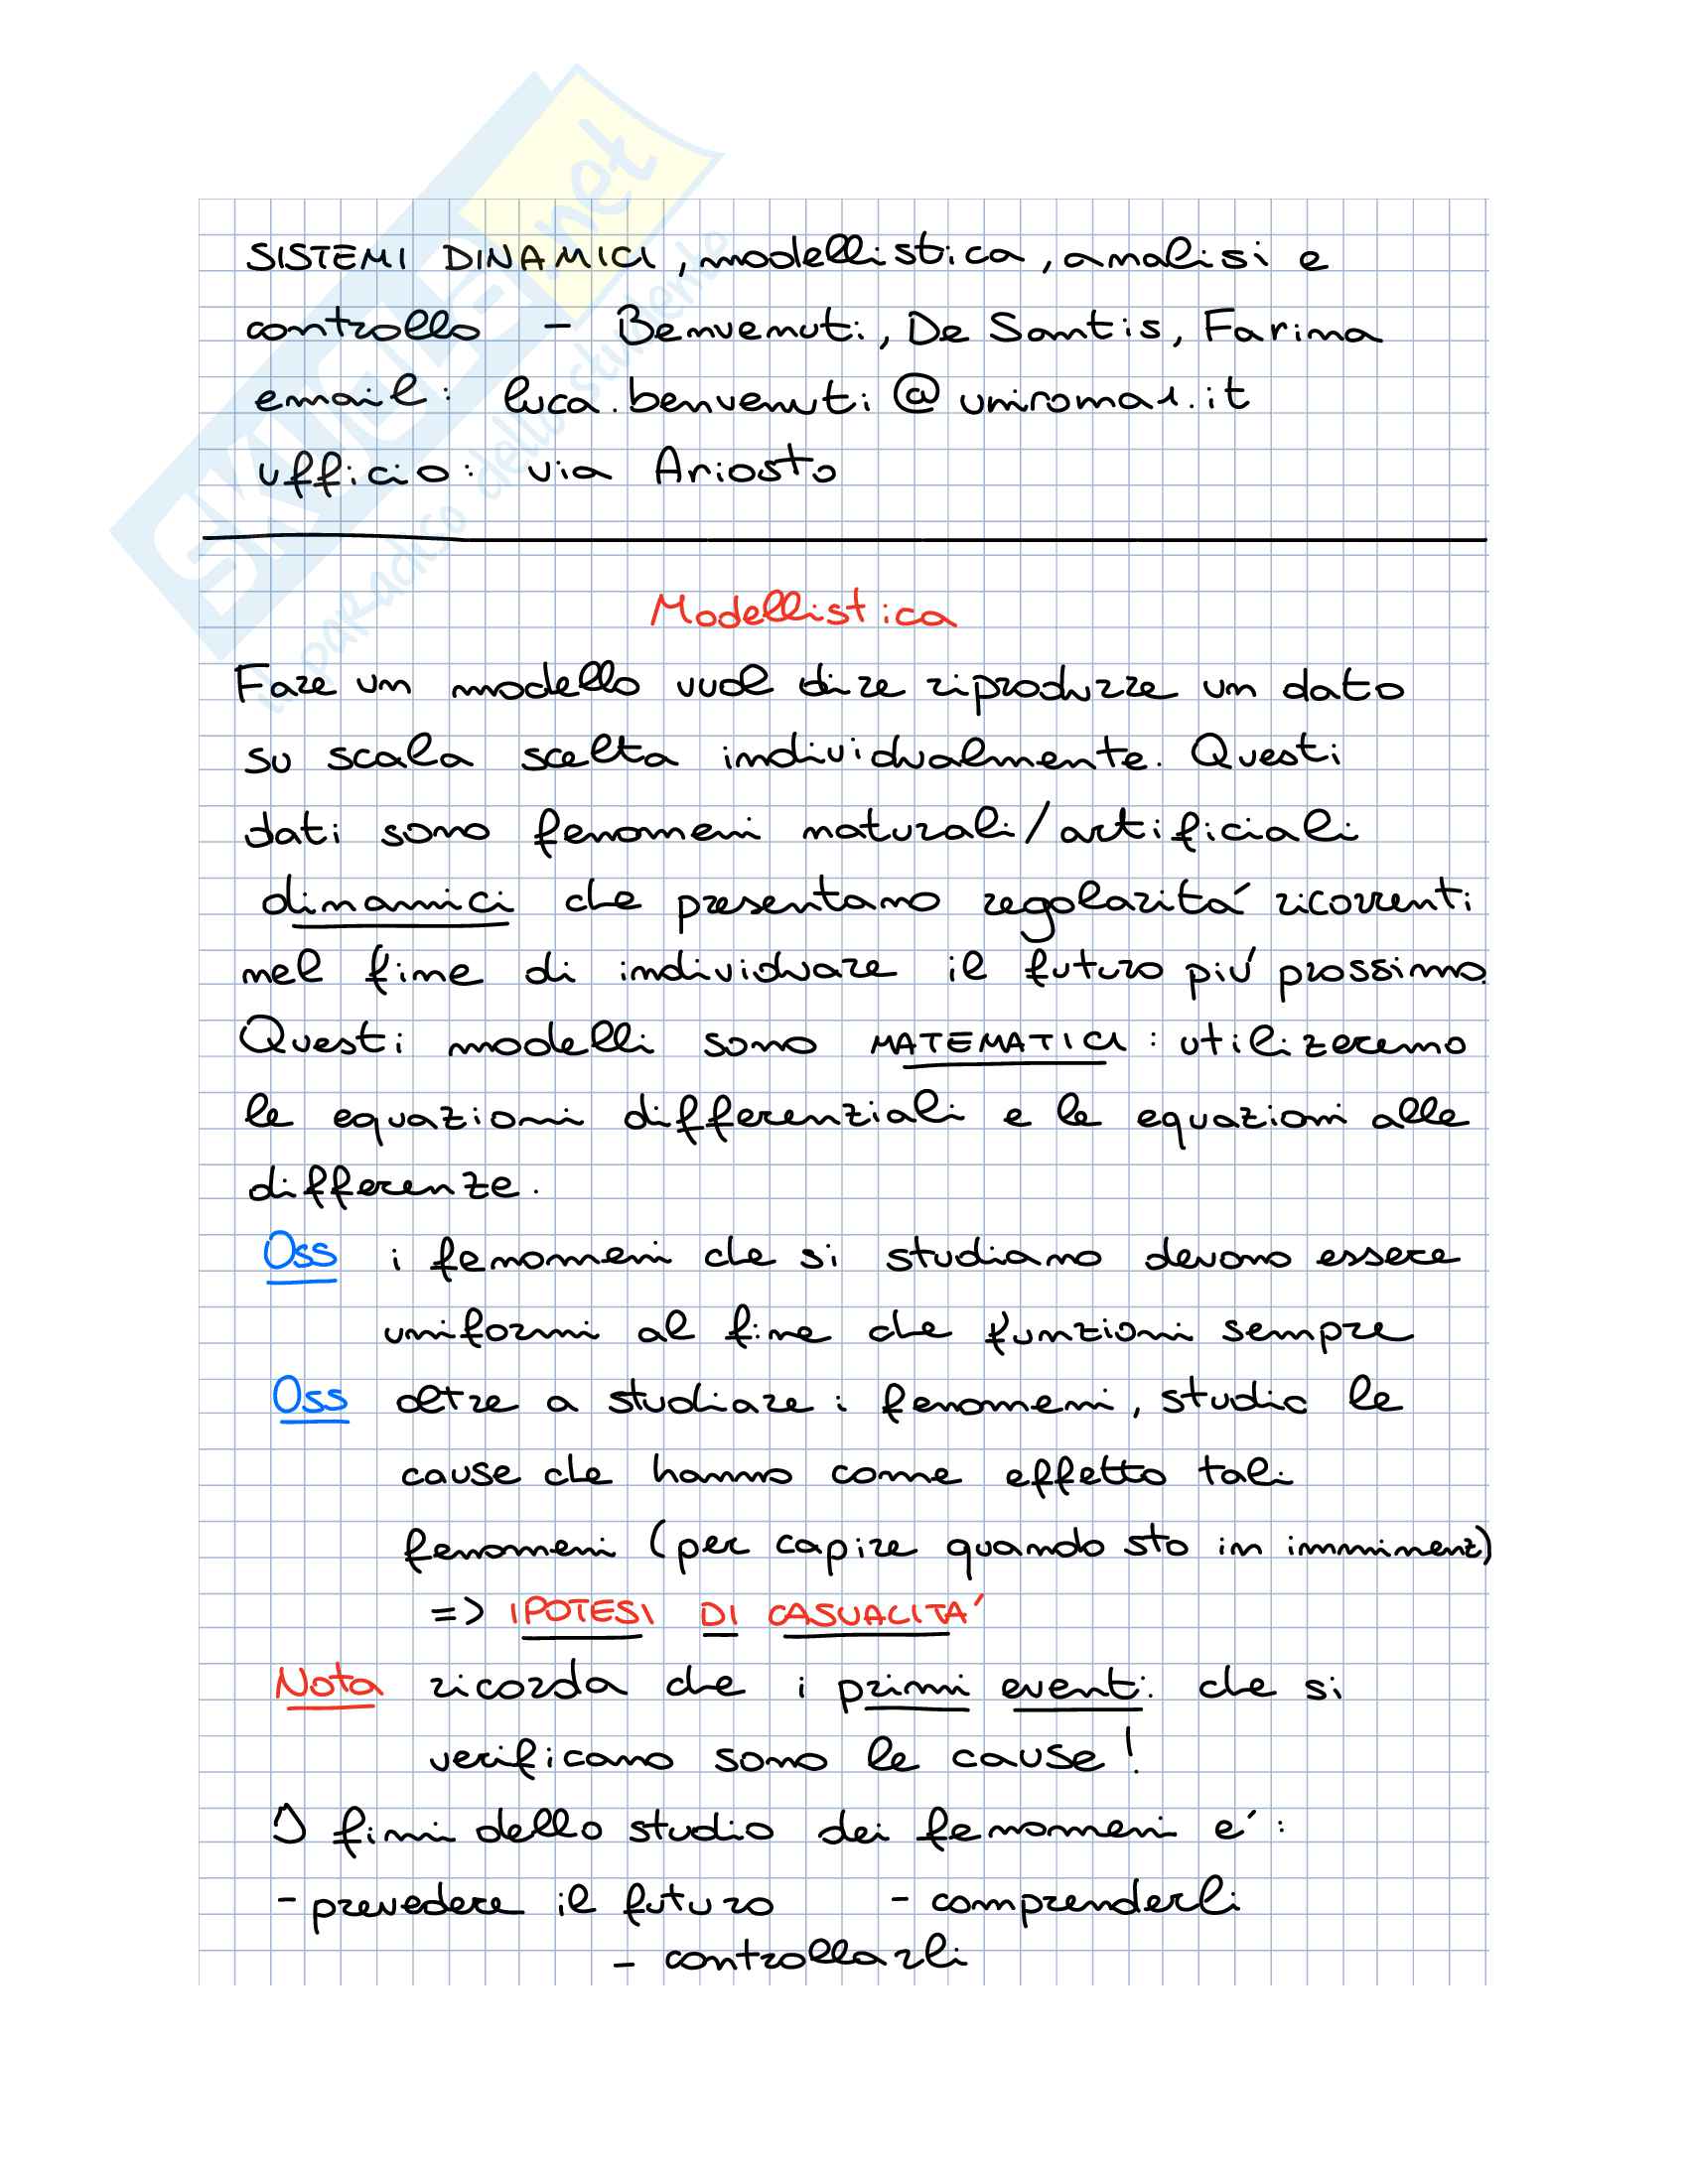 SKUOLA.net
il paradiso dello studente
SISTEMI DINAMICI, modellistica, analisi e
controllo - Benvenuti, De Santis, Farina
email: luca.benvenuti@uniroma1.it
ufficio: via Ariosto
Modellistica
Fare un modello vuol dire riprodurre un dato
su scala scelta individualmente. Questi
dati sono fenomeni naturali/artificiali
dinamici che presentano regolarità ricorrenti
nel fine di individuare il futuro più prossimo.
Questi modelli sono MATEMATICI: utilizeremo
le equazioni differenziali e le equazioni alle
differenze.
Oss i fenomeni che si studiano devono essere
uniformi al fine che funzioni sempre
Oss oltre a studiare i fenomeni, studio le
cause che hanno come effetto tali
fenomeni (per capire quando sto in imminenz)
=> IPOTESI DI CASUALITA'
Nota ricorda che i primi eventi che si
verificano sono le cause!
I fini dello studio dei fenomeni e':
- prevedere il futuro - comprenderli
- controllarli